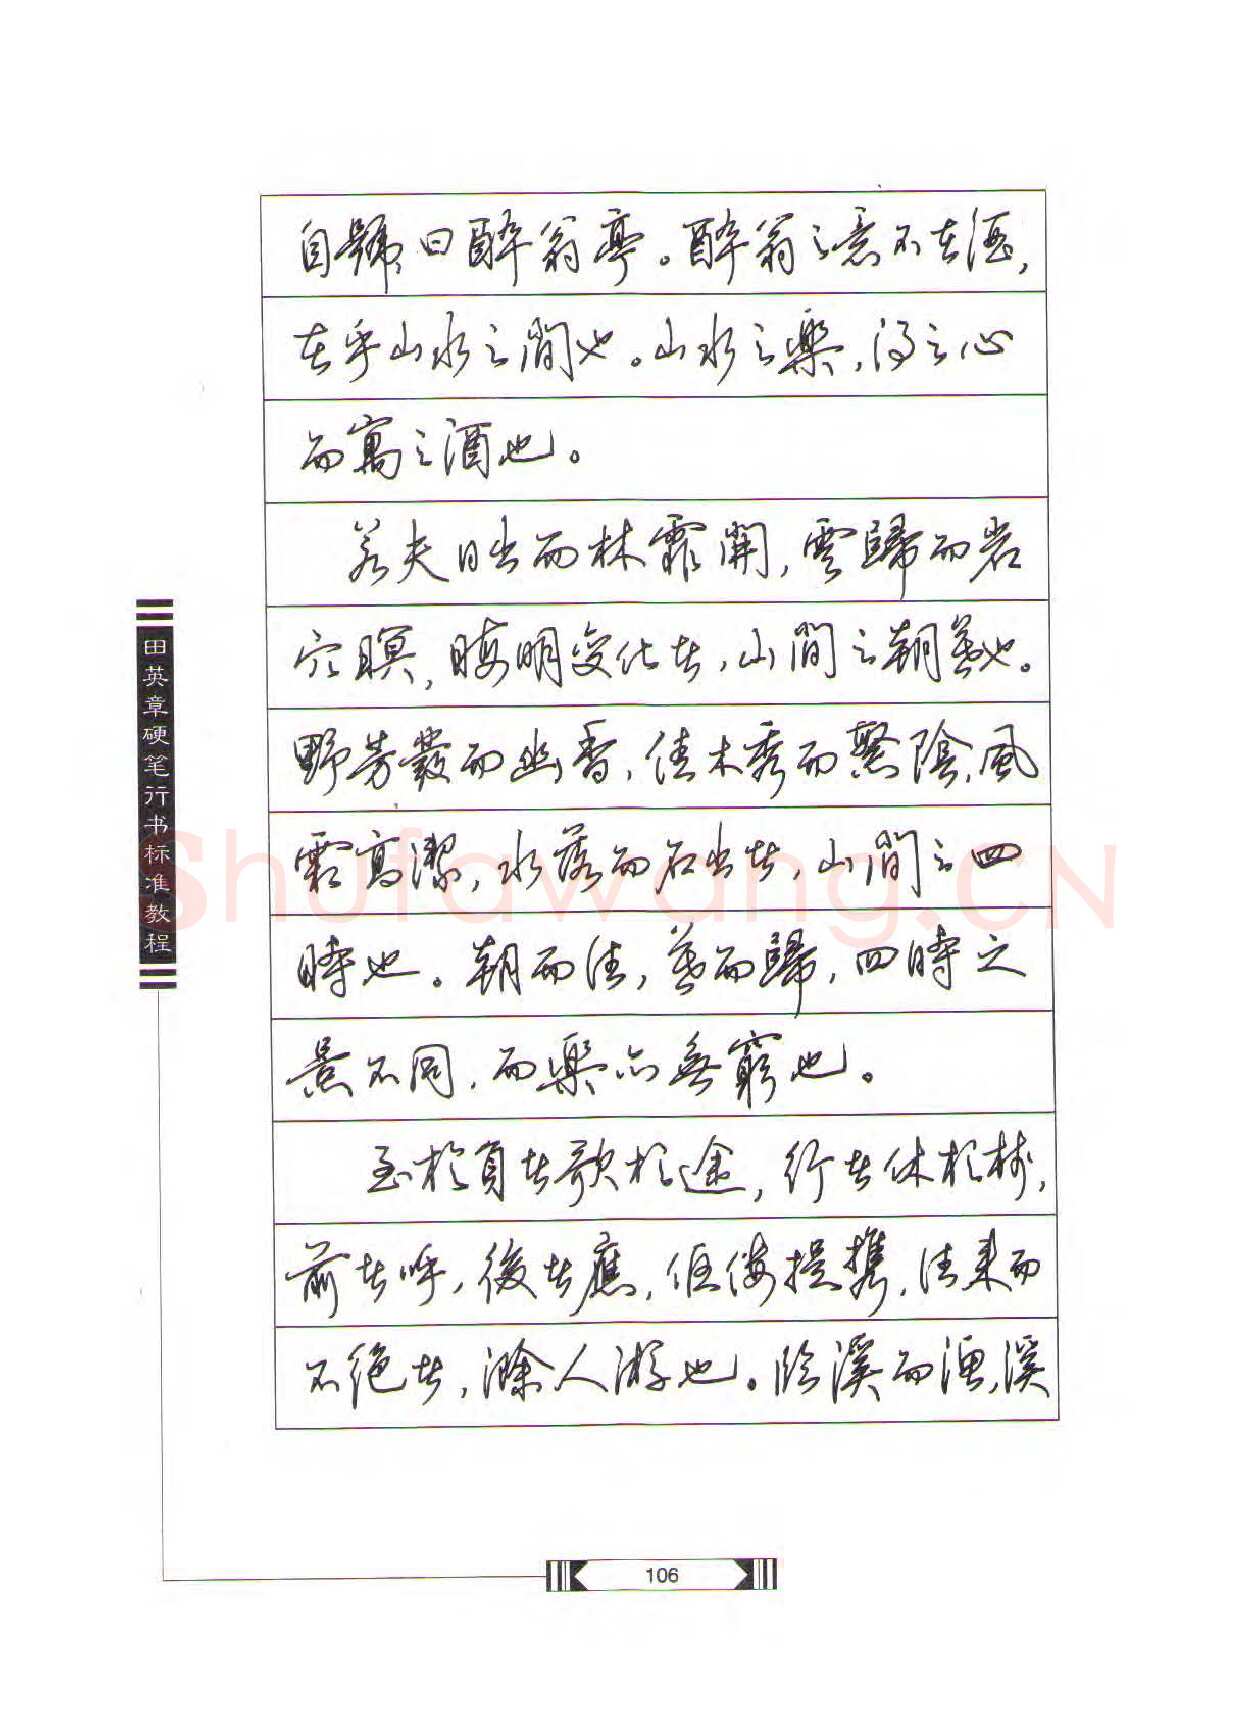 自號曰醉翁亭。醉翁之意不在酒，
在乎山水之間也。山水之樂，得之心
而寓之酒也。
若夫日出而林霏開，雲歸而岩
穴暝，晦明變化者，山間之朝暮也。
野芳發而幽香，佳木秀而繁陰，風
霜高潔，水落而石出者，山間之四
時也。朝而往，暮而歸，四時之
景不同，而樂亦無窮也。
至於負者歌於途，行者休於樹，
前者呼，後者應，傴僂提攜，往來而
不絕者，滁人游也。臨溪而漁，溪
田英章硬笔行书标准教程
Shufawang.CN
106